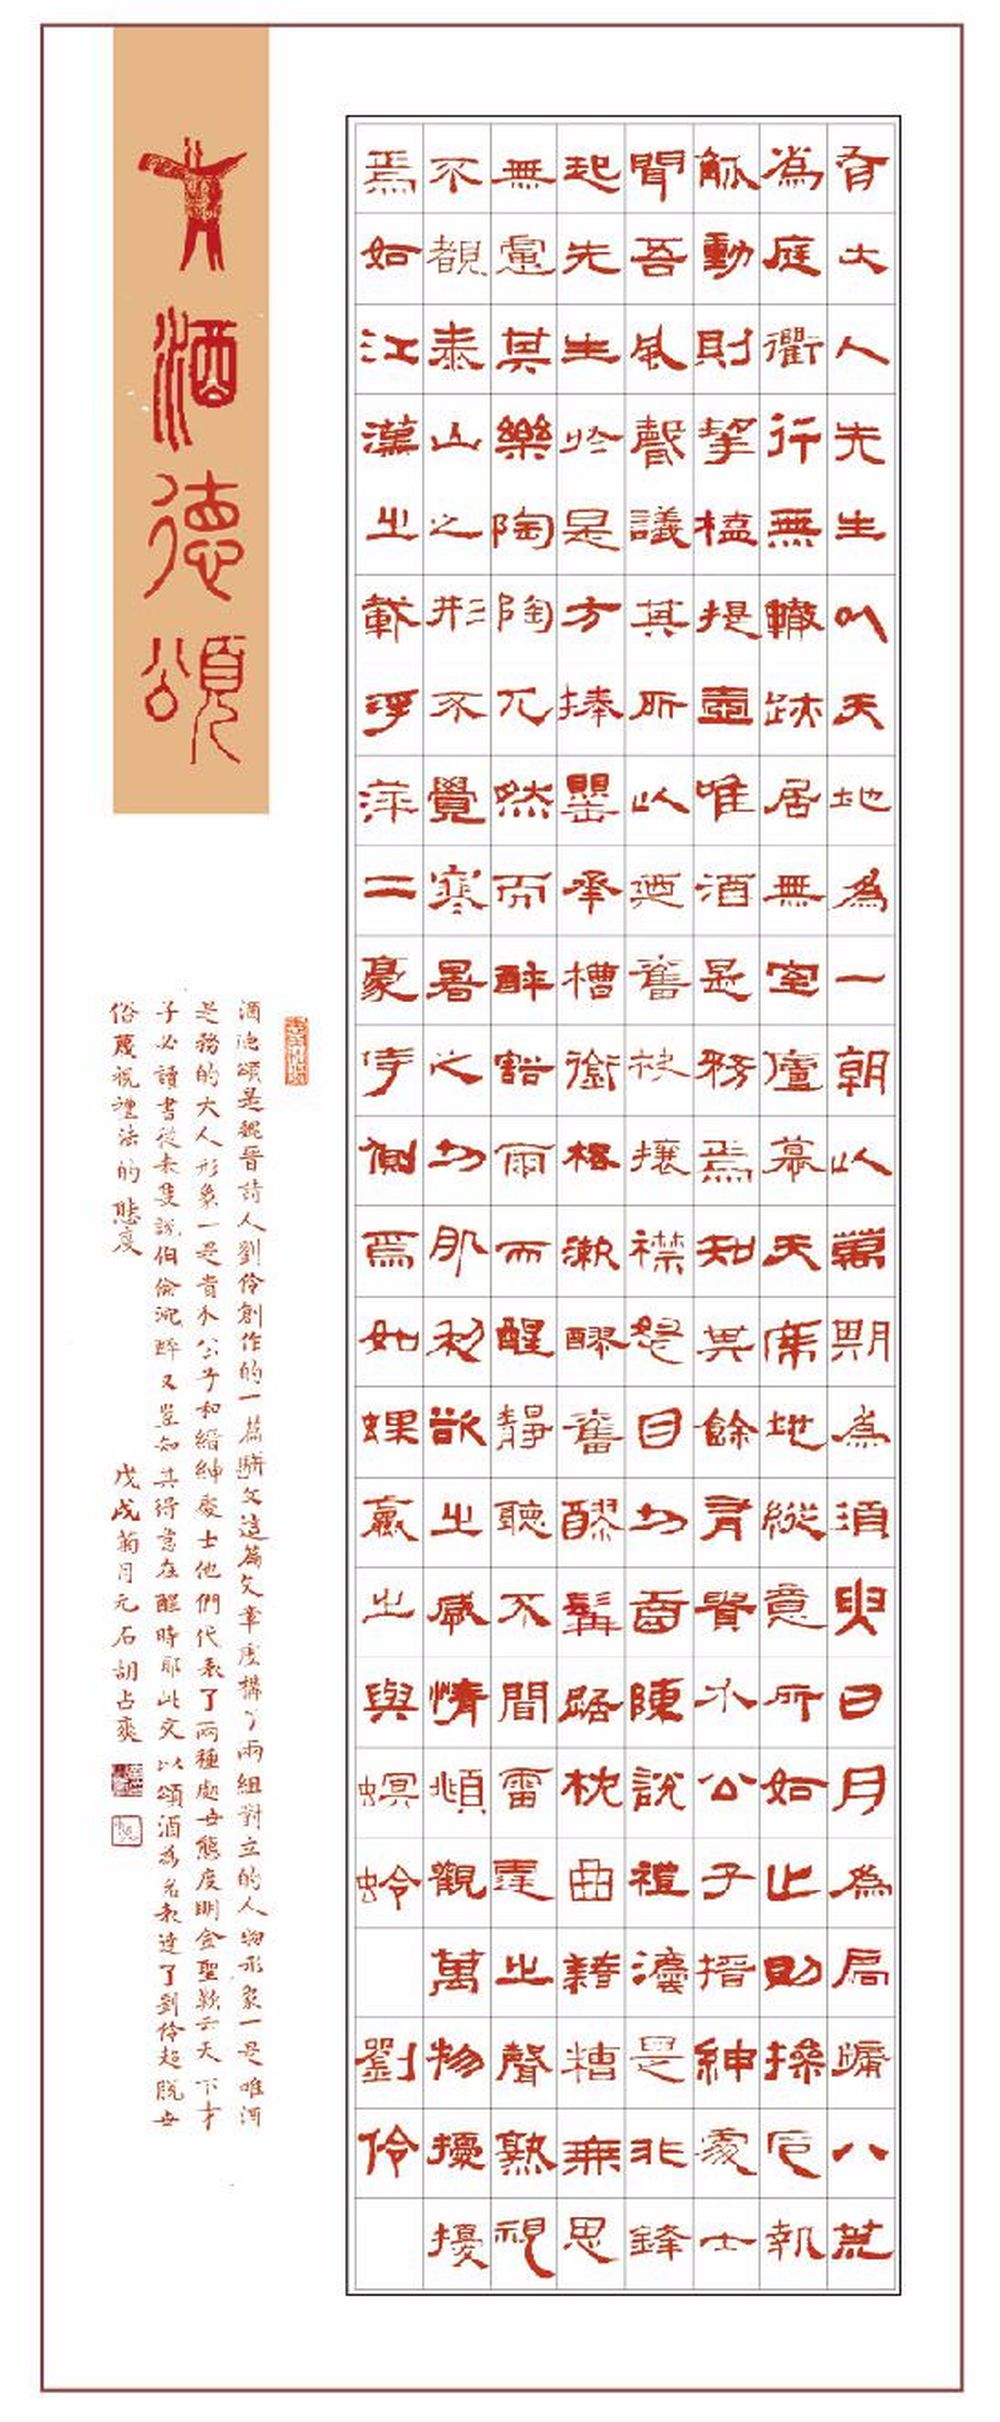 有大人先生以天地為一朝以萬期為須臾日月為扃牖八荒
為庭衢行無轍跡居無室廬幕天席地縱意所如止則操卮執
觚動則挈榼提壺唯酒是務焉知其餘有貴介公子搢紳處士
聞吾風聲議其所以廼奮袂攘襟怒目切齒陳說禮灋是非鋒
起先生於是方捧罌承槽銜桮漱醪奮醪髯踞枕曲藉糟無思
無慮其樂陶陶兀然而醉豁爾而醒靜聽不聞雷霆之聲熟視
不覩泰山之形不覺寒暑之切肌利欲之感情頫觀萬物擾擾
焉如江漢之載浮萍二豪侍側焉如蜾蠃之與螟蛉 劉伶
酒德頌
酒德頌是魏晉詩人劉伶創作的一篇駢文這篇文章虛構了兩組對立的人物形象一是唯酒
是務的大人形象一是貴介公子和縉紳處士他們代表了兩種處世態度明金聖歎云天下才
子必讀書從來隻說伯倫沉醉又豈知其得意在醒時耶此文以頌酒為名表達了劉伶超脫世
俗蔑視禮法的態度 戊戌菊月元石胡占爽